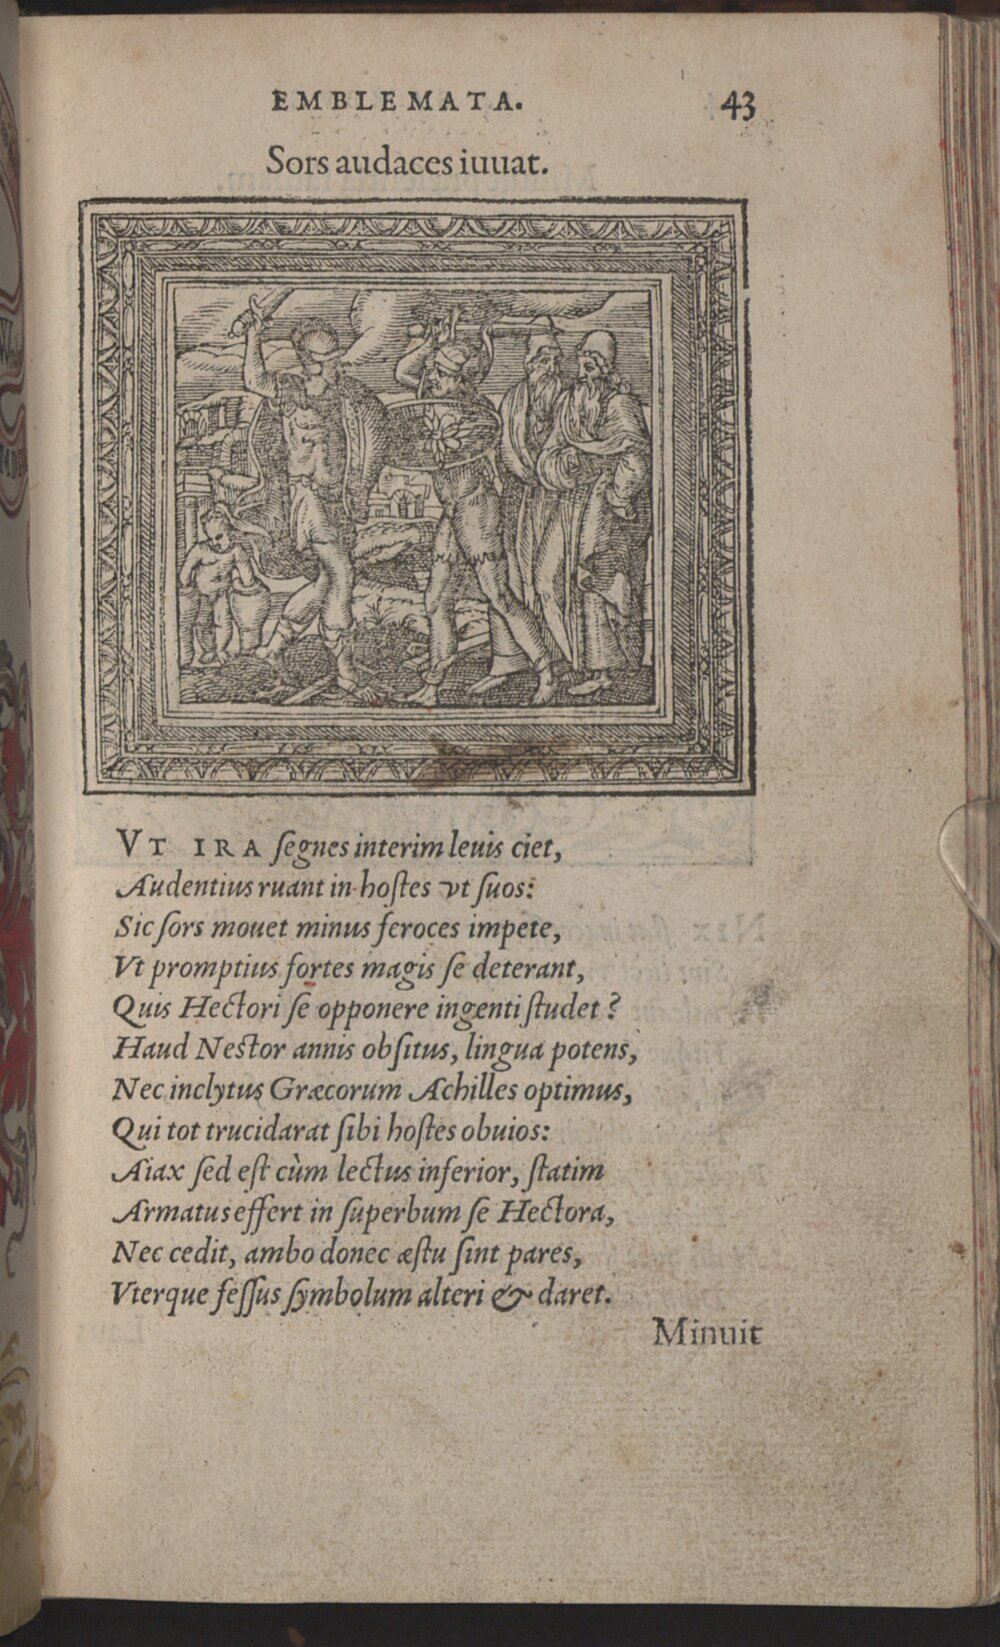 EMBLEMATA. 43
Sors audaces iuuat.
VT IRA ſegnes interim leuis ciet,
Audentius ruant in hoſtes vt ſuos:
Sic ſors mouet minus feroces impete,
Vt promptius fortes magis ſe deterant,
Quis Hectori ſe opponere ingenti ſtudet?
Haud Neſtor annis obſitus, lingua potens,
Nec inclytus Græcorum Achilles optimus,
Qui tot trucidarat ſibi hoſtes obuios:
Aiax ſed eſt cùm lectus inferior, ſtatim
Armatus effert in ſuperbum ſe Hectora,
Nec cedit, ambo donec æſtu ſint pares,
Vterque feſſus ſymbolum alteri & daret.
Minuit